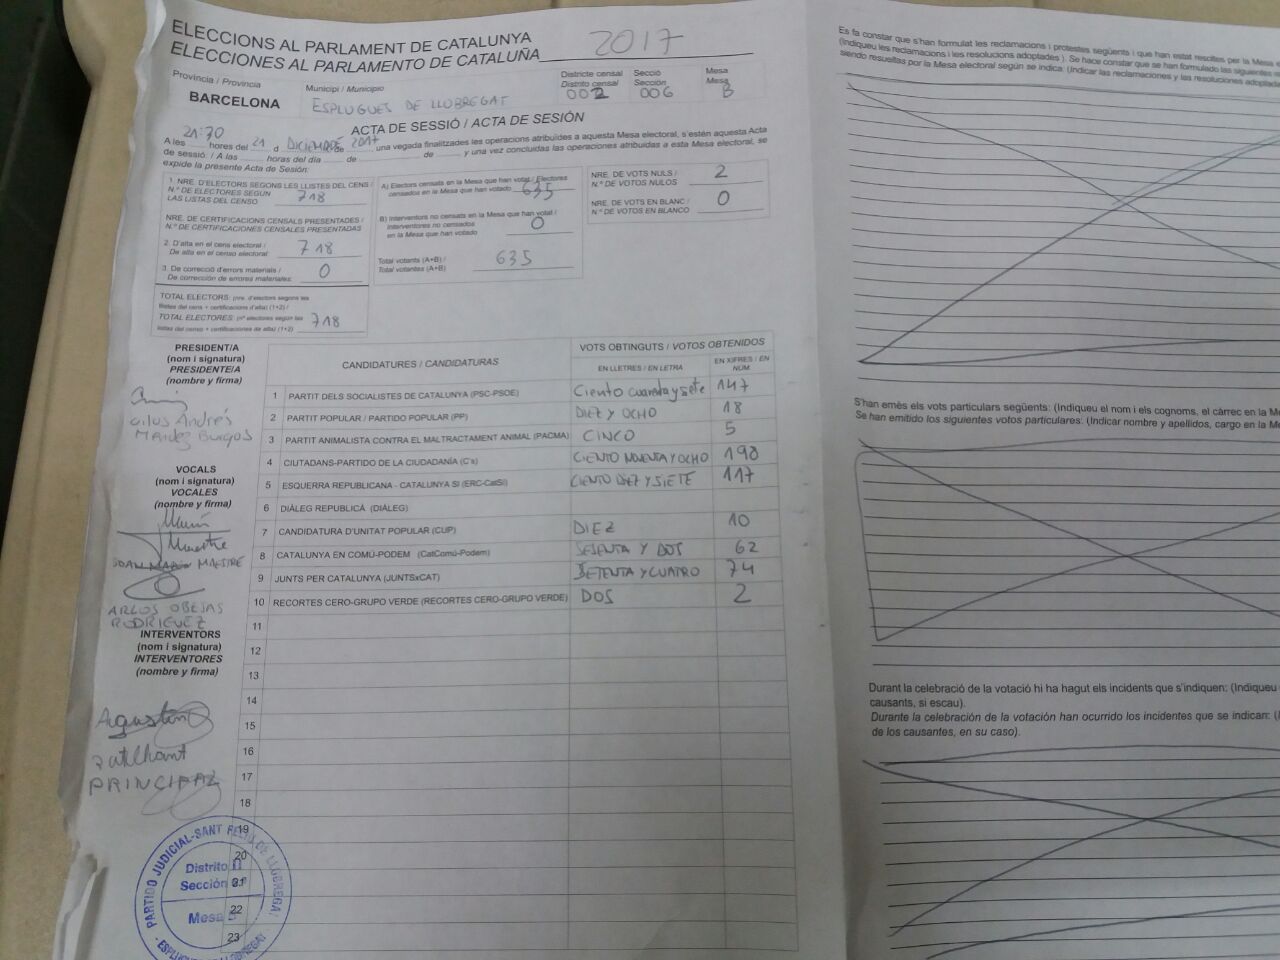 ELECCIONS AL PARLAMENT DE CATALUNYA
ELECCIONES AL PARLAMENTO DE CATALUÑA 2017
Provincia / Provincia
BARCELONA
Municipi / Municipio
ESPLUGUES DE LLOBREGAT
Districte censal
Distrito censal
002
Secció
Sección
006
Mesa
Mesa
B
ACTA DE SESSIÓ / ACTA DE SESIÓN
A les 21:70 hores del 21 d DICIEMBRE de 2017, una vegada finalitzades les operacions atribuïdes a aquesta Mesa electoral, s'estén aquesta Acta
de sessió. / A las horas del día de de y una vez concluidas las operaciones atribuidas a esta Mesa electoral, se
expide la presente Acta de Sesión:
1. NRE. D'ELECTORS SEGONS LES LLISTES DEL CENS /
N.º DE ELECTORES SEGÚN
LAS LISTAS DEL CENSO 718
NRE. DE CERTIFICACIONS CENSALS PRESENTADES /
N.º DE CERTIFICACIONES CENSALES PRESENTADAS
2. D'alta en el cens electoral /
De alta en el censo electoral: 718
3. De correcció d'errors materials /
De corrección de errores materiales: 0
TOTAL ELECTORS: (nre. d'electors segons les
llistes del cens + certificacions d'alta) (1+2) /
TOTAL ELECTORES: (nº electores según las
listas del censo + certificaciones de alta) (1+2) 718
A) Electors censats en la Mesa que han votat / Electores
censados en la Mesa que han votado 635
B) Interventors no censats en la Mesa que han votat /
Interventores no censados
en la Mesa que han votado 0
Total votants (A+B) /
Total votantes (A+B) 635
NRE. DE VOTS NULS /
N.º DE VOTOS NULOS 2
NRE. DE VOTS EN BLANC /
N.º DE VOTOS EN BLANCO 0
PRESIDENT/A
(nom i signatura)
PRESIDENTE/A
(nombre y firma)
Andrés
Burgos
VOCALS
(nom i signatura)
VOCALES
(nombre y firma)
Maestre
MAESTRE
ARLOS OBEJAS
RODRIGUEZ
INTERVENTORS
(nom i signatura)
INTERVENTORES
(nombre y firma)
Agustin
PRINCIPAL
CANDIDATURES / CANDIDATURAS
VOTS OBTINGUTS / VOTOS OBTENIDOS
EN LLETRES / EN LETRA
EN XIFRES / EN NÚM.
1 PARTIT DELS SOCIALISTES DE CATALUNYA (PSC-PSOE) Ciento cuarenta y siete 147
2 PARTIT POPULAR / PARTIDO POPULAR (PP) DIEZ Y OCHO 18
3 PARTIT ANIMALISTA CONTRA EL MALTRACTAMENT ANIMAL (PACMA) CINCO 5
4 CIUTADANS-PARTIDO DE LA CIUDADANÍA (C's) CIENTO NOVENTA Y OCHO 198
5 ESQUERRA REPUBLICANA - CATALUNYA SÍ (ERC-CatSí) CIENTO DIEZ Y SIETE 117
6 DIÀLEG REPUBLICÀ (DIÀLEG)
7 CANDIDATURA D'UNITAT POPULAR (CUP) DIEZ 10
8 CATALUNYA EN COMÚ-PODEM (CatComú-Podem) SESENTA Y DOS 62
9 JUNTS PER CATALUNYA (JUNTSxCAT) SETENTA Y CUATRO 74
10 RECORTES CERO-GRUPO VERDE (RECORTES CERO-GRUPO VERDE) DOS 2
11
12
13
14
15
16
17
18
19
20
21
22
23
PARTIDO JUDICIAL-SANT FELIX DE LLOBREGAT
Distrito II
Sección
Mesa
Es fa constar que s'han formulat les reclamacions i protestes següents i que han estat resoltes per la Mesa
(Indiqueu les reclamacions i les resolucions adoptades). Se hace constar que se han formulado las siguientes
siendo resueltas por la Mesa electoral según se indica: (Indicar las reclamaciones y las resoluciones
S'han emès els vots particulars següents: (Indiqueu el nom i els cognoms, el càrrec en la
Se han emitido los siguientes votos particulares: (Indicar nombre y apellidos, cargo en la
Durant la celebració de la votació hi ha hagut els incidents que s'indiquen: (Indiqueu
causants, si escau).
Durante la celebración de la votación han ocurrido los incidentes que se indican:
de los causantes, en su caso).